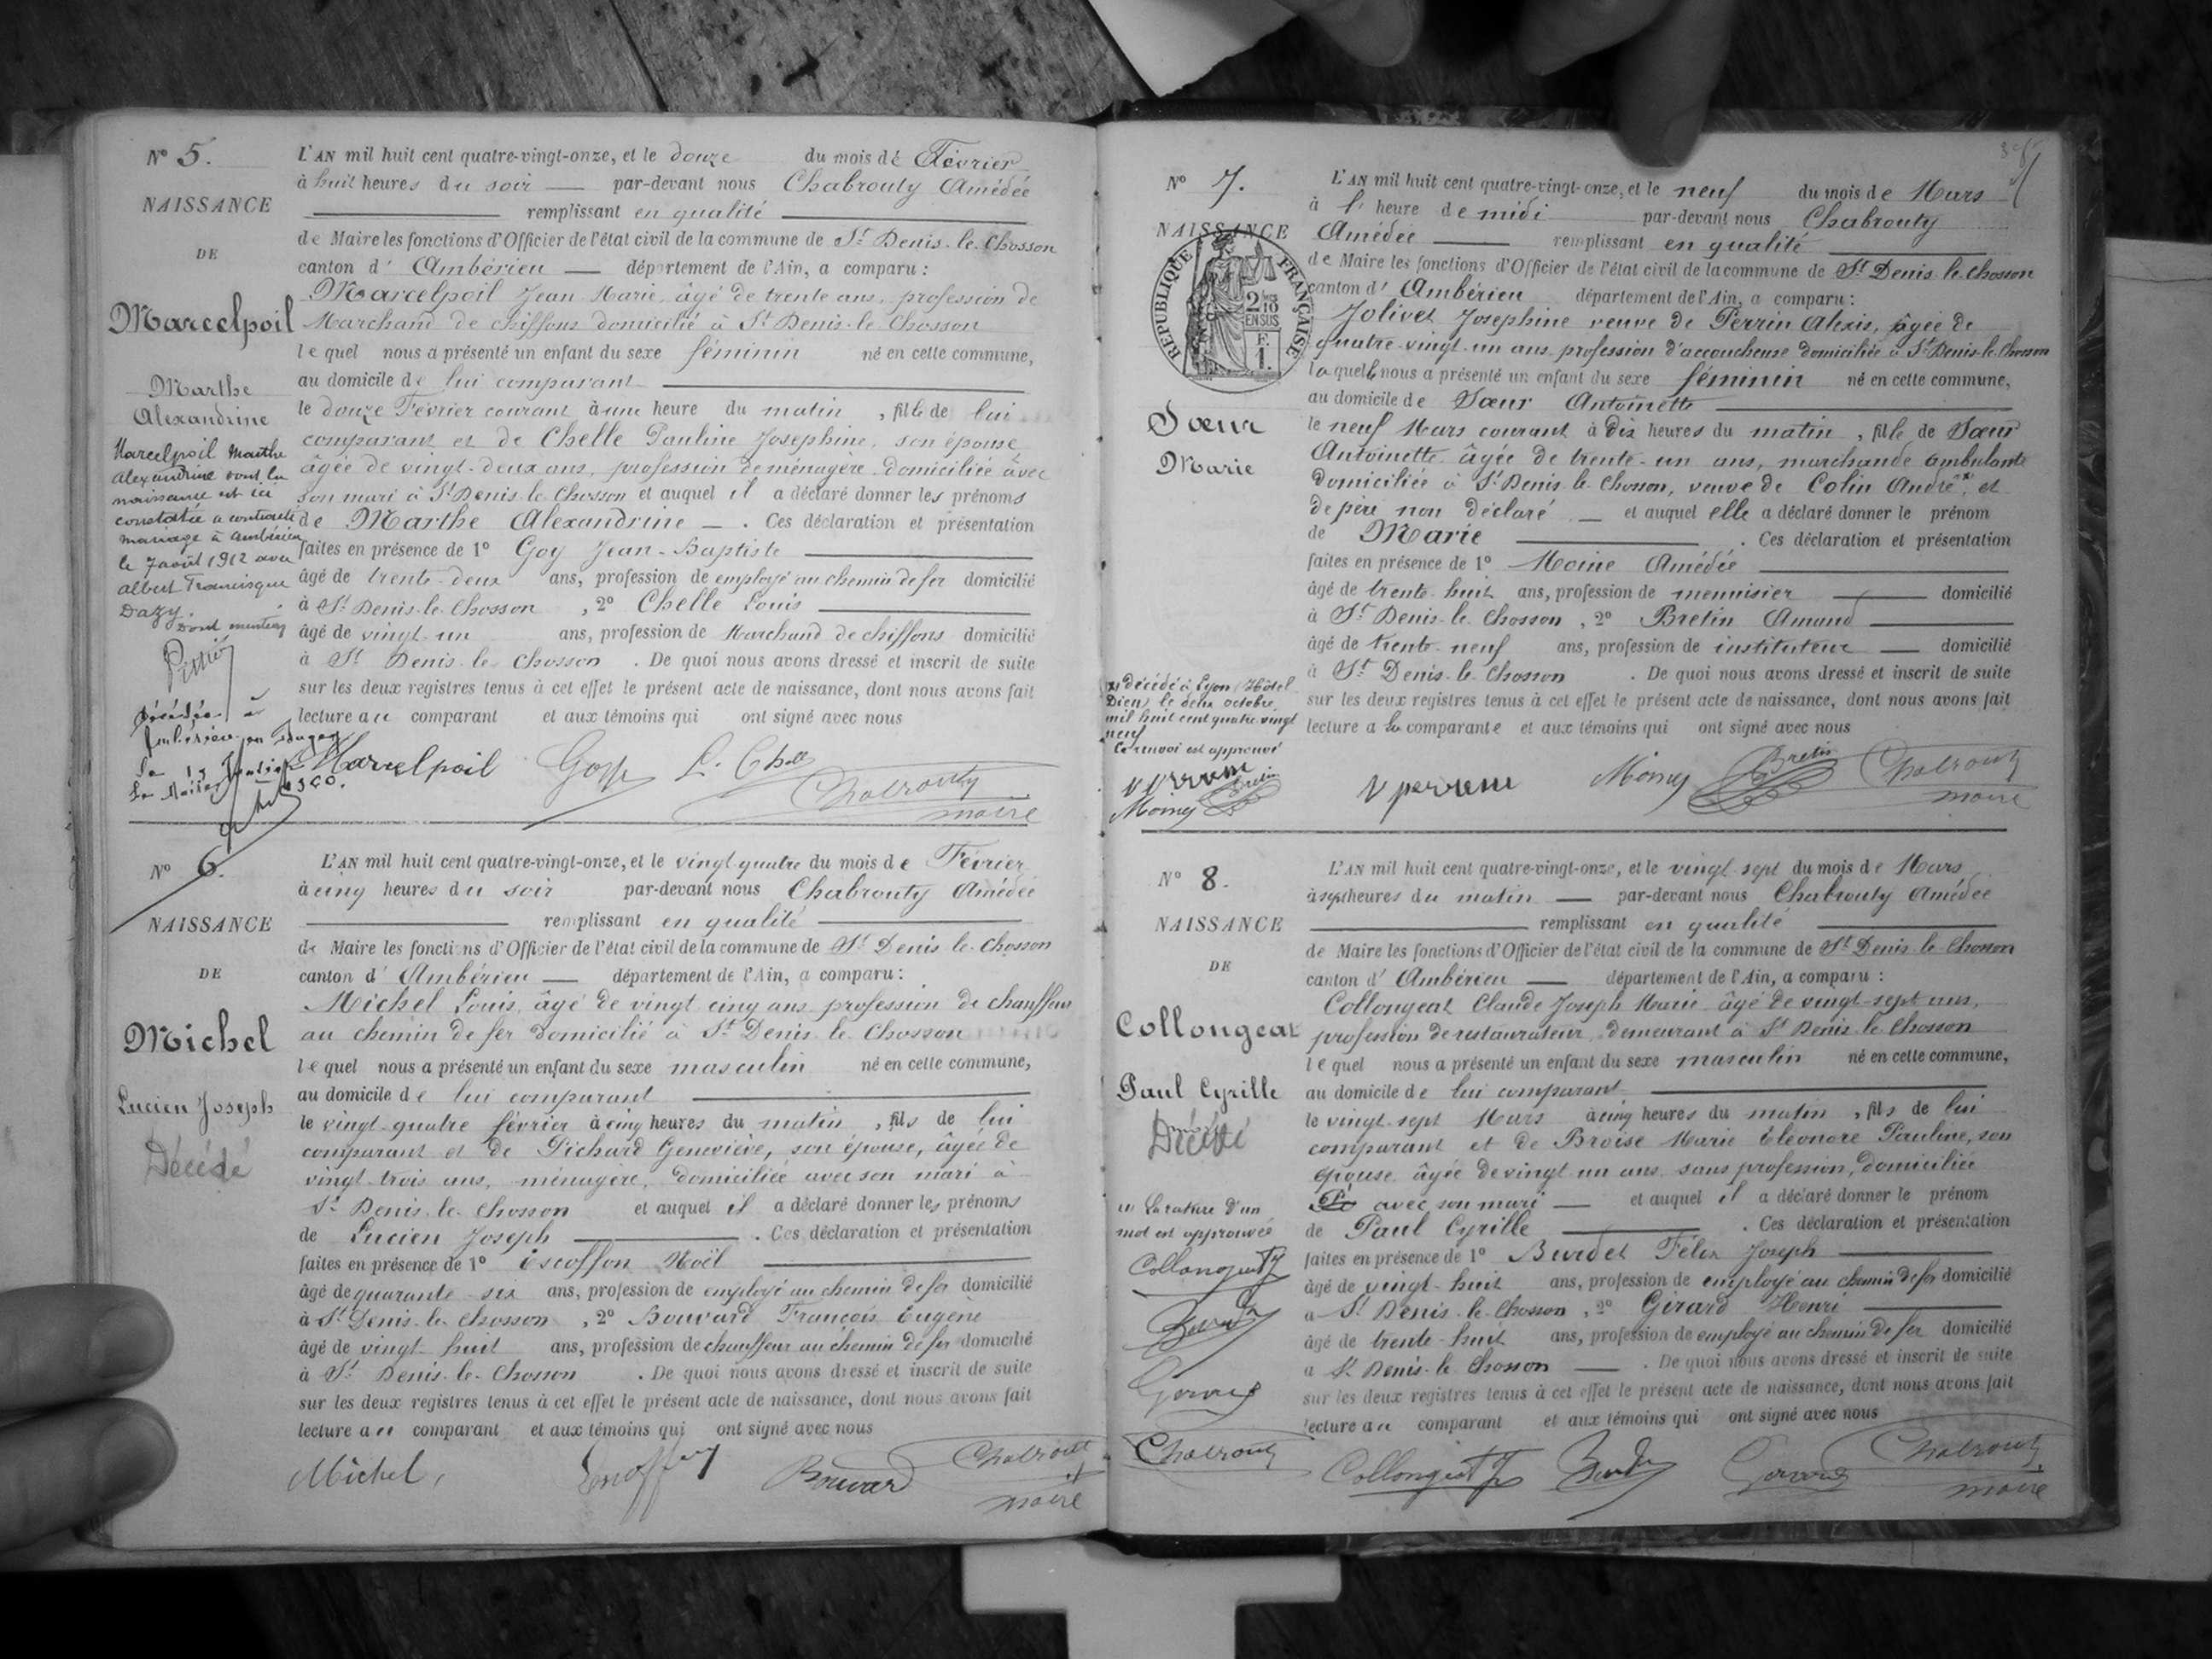 N° 5.
NAISSANCE
DE
Marcelpoil
Marthe
Alexandrine
Marcelpoil Marthe
Alexandrine dont la
naissance est ici
constatée a contracté
mariage à Ambérieu
le 7 août 1912 avec
Albert Francisque
Dazy.
Dont mention
Décédée à
Ambérieu en Bugey
Le Maire
L'AN mil huit cent quatre-vingt-onze, et le douze du mois de Février
à huit heures du soir — par-devant nous Chabrouty Amédée
remplissant en qualité
de Maire les fonctions d'Officier de l'état civil de la commune de St Denis-le-Chosson
canton d'Ambérieu — département de l'Ain, a comparu :
Marcelpoil Jean Marie âgé de trente ans, profession de
Marchand de chiffons domicilié à St Denis-le-Chosson
lequel nous a présenté un enfant du sexe féminin né en cette commune,
au domicile de lui comparant
le douze Février courant à une heure du matin, fille de lui
comparant et de Chelle Pauline Josephine, son épouse
âgée de vingt-deux ans, profession de ménagère domiciliée avec
son mari à St Denis-le-Chosson et auquel il a déclaré donner les prénoms
de Marthe Alexandrine — . Ces déclaration et présentation
faites en présence de 1° Goy Jean-Baptiste
âgé de trente-deux ans, profession de employé au chemin de fer domicilié
à St Denis-le-Chosson, 2° Chelle Louis
âgé de vingt-un ans, profession de Marchand de chiffons domicilié
à St Denis-le-Chosson. De quoi nous avons dressé et inscrit de suite
sur les deux registres tenus à cet effet le présent acte de naissance, dont nous avons fait
lecture au comparant et aux témoins qui ont signé avec nous
Marcelpoil L. Chelle Chabrouty
maire
N° 6.
NAISSANCE
DE
Michel
Lucien Joseph
Décédé
L'AN mil huit cent quatre-vingt-onze, et le vingt-quatre du mois de Février
à cinq heures du soir par-devant nous Chabrouty Amédée
remplissant en qualité
de Maire les fonctions d'Officier de l'état civil de la commune de St Denis-le-Chosson
canton d'Ambérieu — département de l'Ain, a comparu :
Michel Louis, âgé de vingt cinq ans profession de chauffeur
au chemin de fer domicilié à St Denis-le-Chosson
lequel nous a présenté un enfant du sexe masculin né en cette commune,
au domicile de lui comparant
le vingt-quatre février à cinq heures du matin, fils de lui
comparant et de Pichard Geneviève, son épouse, âgée de
vingt-trois ans, ménagère, domiciliée avec son mari à
St Denis-le-Chosson et auquel il a déclaré donner les prénoms
de Lucien Joseph — . Ces déclaration et présentation
faites en présence de 1° Escoffon Noël
âgé de quarante-six ans, profession de employé au chemin de fer domicilié
à St Denis-le-Chosson, 2° Bouvard François Eugène
âgé de vingt-huit ans, profession de chauffeur au chemin de fer domicilié
à St Denis-le-Chosson. De quoi nous avons dressé et inscrit de suite
sur les deux registres tenus à cet effet le présent acte de naissance, dont nous avons fait
lecture au comparant et aux témoins qui ont signé avec nous
Michel Bouvard Chabrouty
maire
N° 7.
NAISSANCE
RÉPUBLIQUE FRANÇAISE
2/10
EN SUS
F.
1.
Sœur
Marie
x) décédé à Lyon (Hôtel
Dieu) le deux octobre
mil huit cent quatre vingt
neuf
Ce renvoi est approuvé
V perrem
Moine Bretin
L'AN mil huit cent quatre-vingt-onze, et le neuf du mois de Mars
à l'heure de midi par-devant nous Chabrouty
Amédée — remplissant en qualité
de Maire les fonctions d'Officier de l'état civil de la commune de St Denis-le-Chosson
canton d'Ambérieu département de l'Ain, a comparu :
Jolivet Josephine veuve de Perrin Alexis, âgée de
quatre-vingt-un ans profession d'accoucheuse domiciliée à St Denis-le-Chosson
laquelle nous a présenté un enfant du sexe féminin né en cette commune,
au domicile de Sœur Antoinette
le neuf Mars courant à dix heures du matin, fille de Sœur
Antoinette âgée de trente-un ans, marchande ambulante
domiciliée à St Denis-le-Chosson, veuve de Colin André x, et
de père non déclaré — et auquel elle a déclaré donner le prénom
de Marie — . Ces déclaration et présentation
faites en présence de 1° Moine Amédée
âgé de trente-huit ans, profession de menuisier — domicilié
à St Denis-le-Chosson, 2° Bretin Amand
âgé de trente-neuf ans, profession de instituteur — domicilié
à St Denis-le-Chosson. De quoi nous avons dressé et inscrit de suite
sur les deux registres tenus à cet effet le présent acte de naissance, dont nous avons fait
lecture a la comparante et aux témoins qui ont signé avec nous
V perrem Moine Bretin Chabrouty
maire
N° 8.
NAISSANCE
DE
Collongeat
Paul Cyrille
Décédé
La rature d'un
mot est approuvée
Collongeat
Burdet
Girard
Chabrouty
L'AN mil huit cent quatre-vingt-onze, et le vingt-sept du mois de Mars
à sept heures du matin — par-devant nous Chabrouty Amédée
remplissant en qualité
de Maire les fonctions d'Officier de l'état civil de la commune de St Denis-le-Chosson
canton d'Ambérieu — département de l'Ain, a comparu :
Collongeat Claude Joseph Marie âgé de vingt-sept ans,
profession de restaurateur, demeurant à St Denis-le-Chosson
lequel nous a présenté un enfant du sexe masculin né en cette commune,
au domicile de lui comparant
le vingt-sept Mars à cinq heures du matin, fils de lui
comparant et de Broise Marie Eléonore Pauline, son
épouse âgée de vingt-un ans sans profession, domiciliée
avec son mari — et auquel il a déclaré donner le prénom
de Paul Cyrille — . Ces déclaration et présentation
faites en présence de 1° Burdet Félix Joseph
âgé de vingt-huit ans, profession de employé au chemin de fer domicilié
à St Denis-le-Chosson, 2° Girard Henri
âgé de trente-huit ans, profession de employé au chemin de fer domicilié
à St Denis-le-Chosson — . De quoi nous avons dressé et inscrit de suite
sur les deux registres tenus à cet effet le présent acte de naissance, dont nous avons fait
lecture au comparant et aux témoins qui ont signé avec nous
Collongeat Burdet Girard Chabrouty
maire